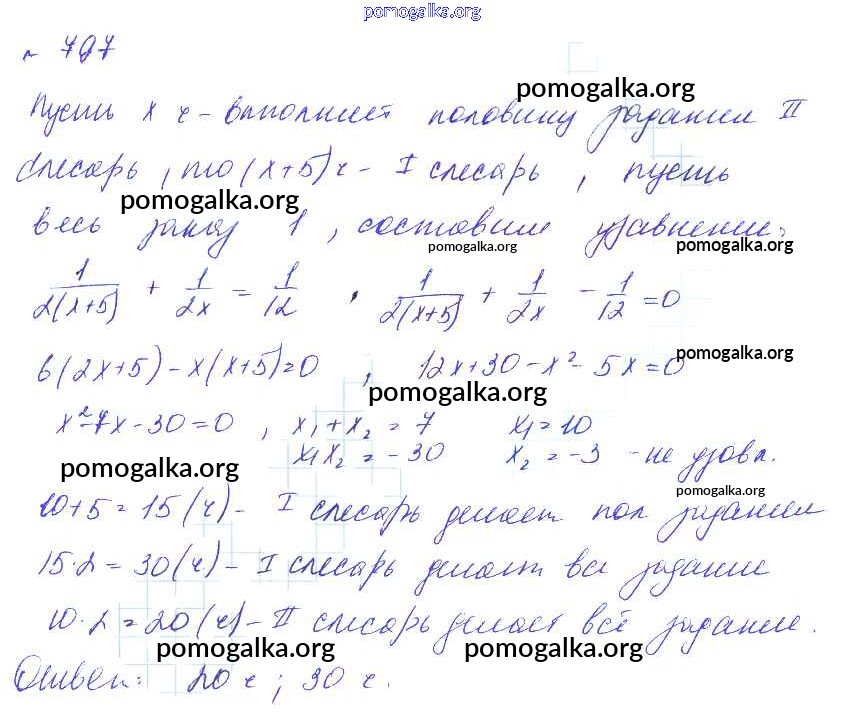 pomogalka.org
№ 797
pomogalka.org
Пусть x ч - выполняет половину задания II
слесарь, то (x+5) ч - I слесарь, пусть
pomogalka.org
весь заказ 1, составим уравнение:
pomogalka.org pomogalka.org
1/2(x+5) + 1/2x = 1/12 , 1/2(x+5) + 1/2x - 1/12 = 0
6(2x+5) - x(x+5) = 0 , 12x+30-x²-5x=0
pomogalka.org
pomogalka.org
x²-7x-30=0 , x₁+x₂=7 x₁=10
x₁x₂=-30 x₂=-3 - не удовл.
pomogalka.org
pomogalka.org
10+5=15(ч) - I слесарь делает пол задания
15·2=30(ч) - I слесарь делает все задание
10·2=20(ч) - II слесарь делает всё задание.
pomogalka.org pomogalka.org
Ответ: 20 ч; 30 ч.